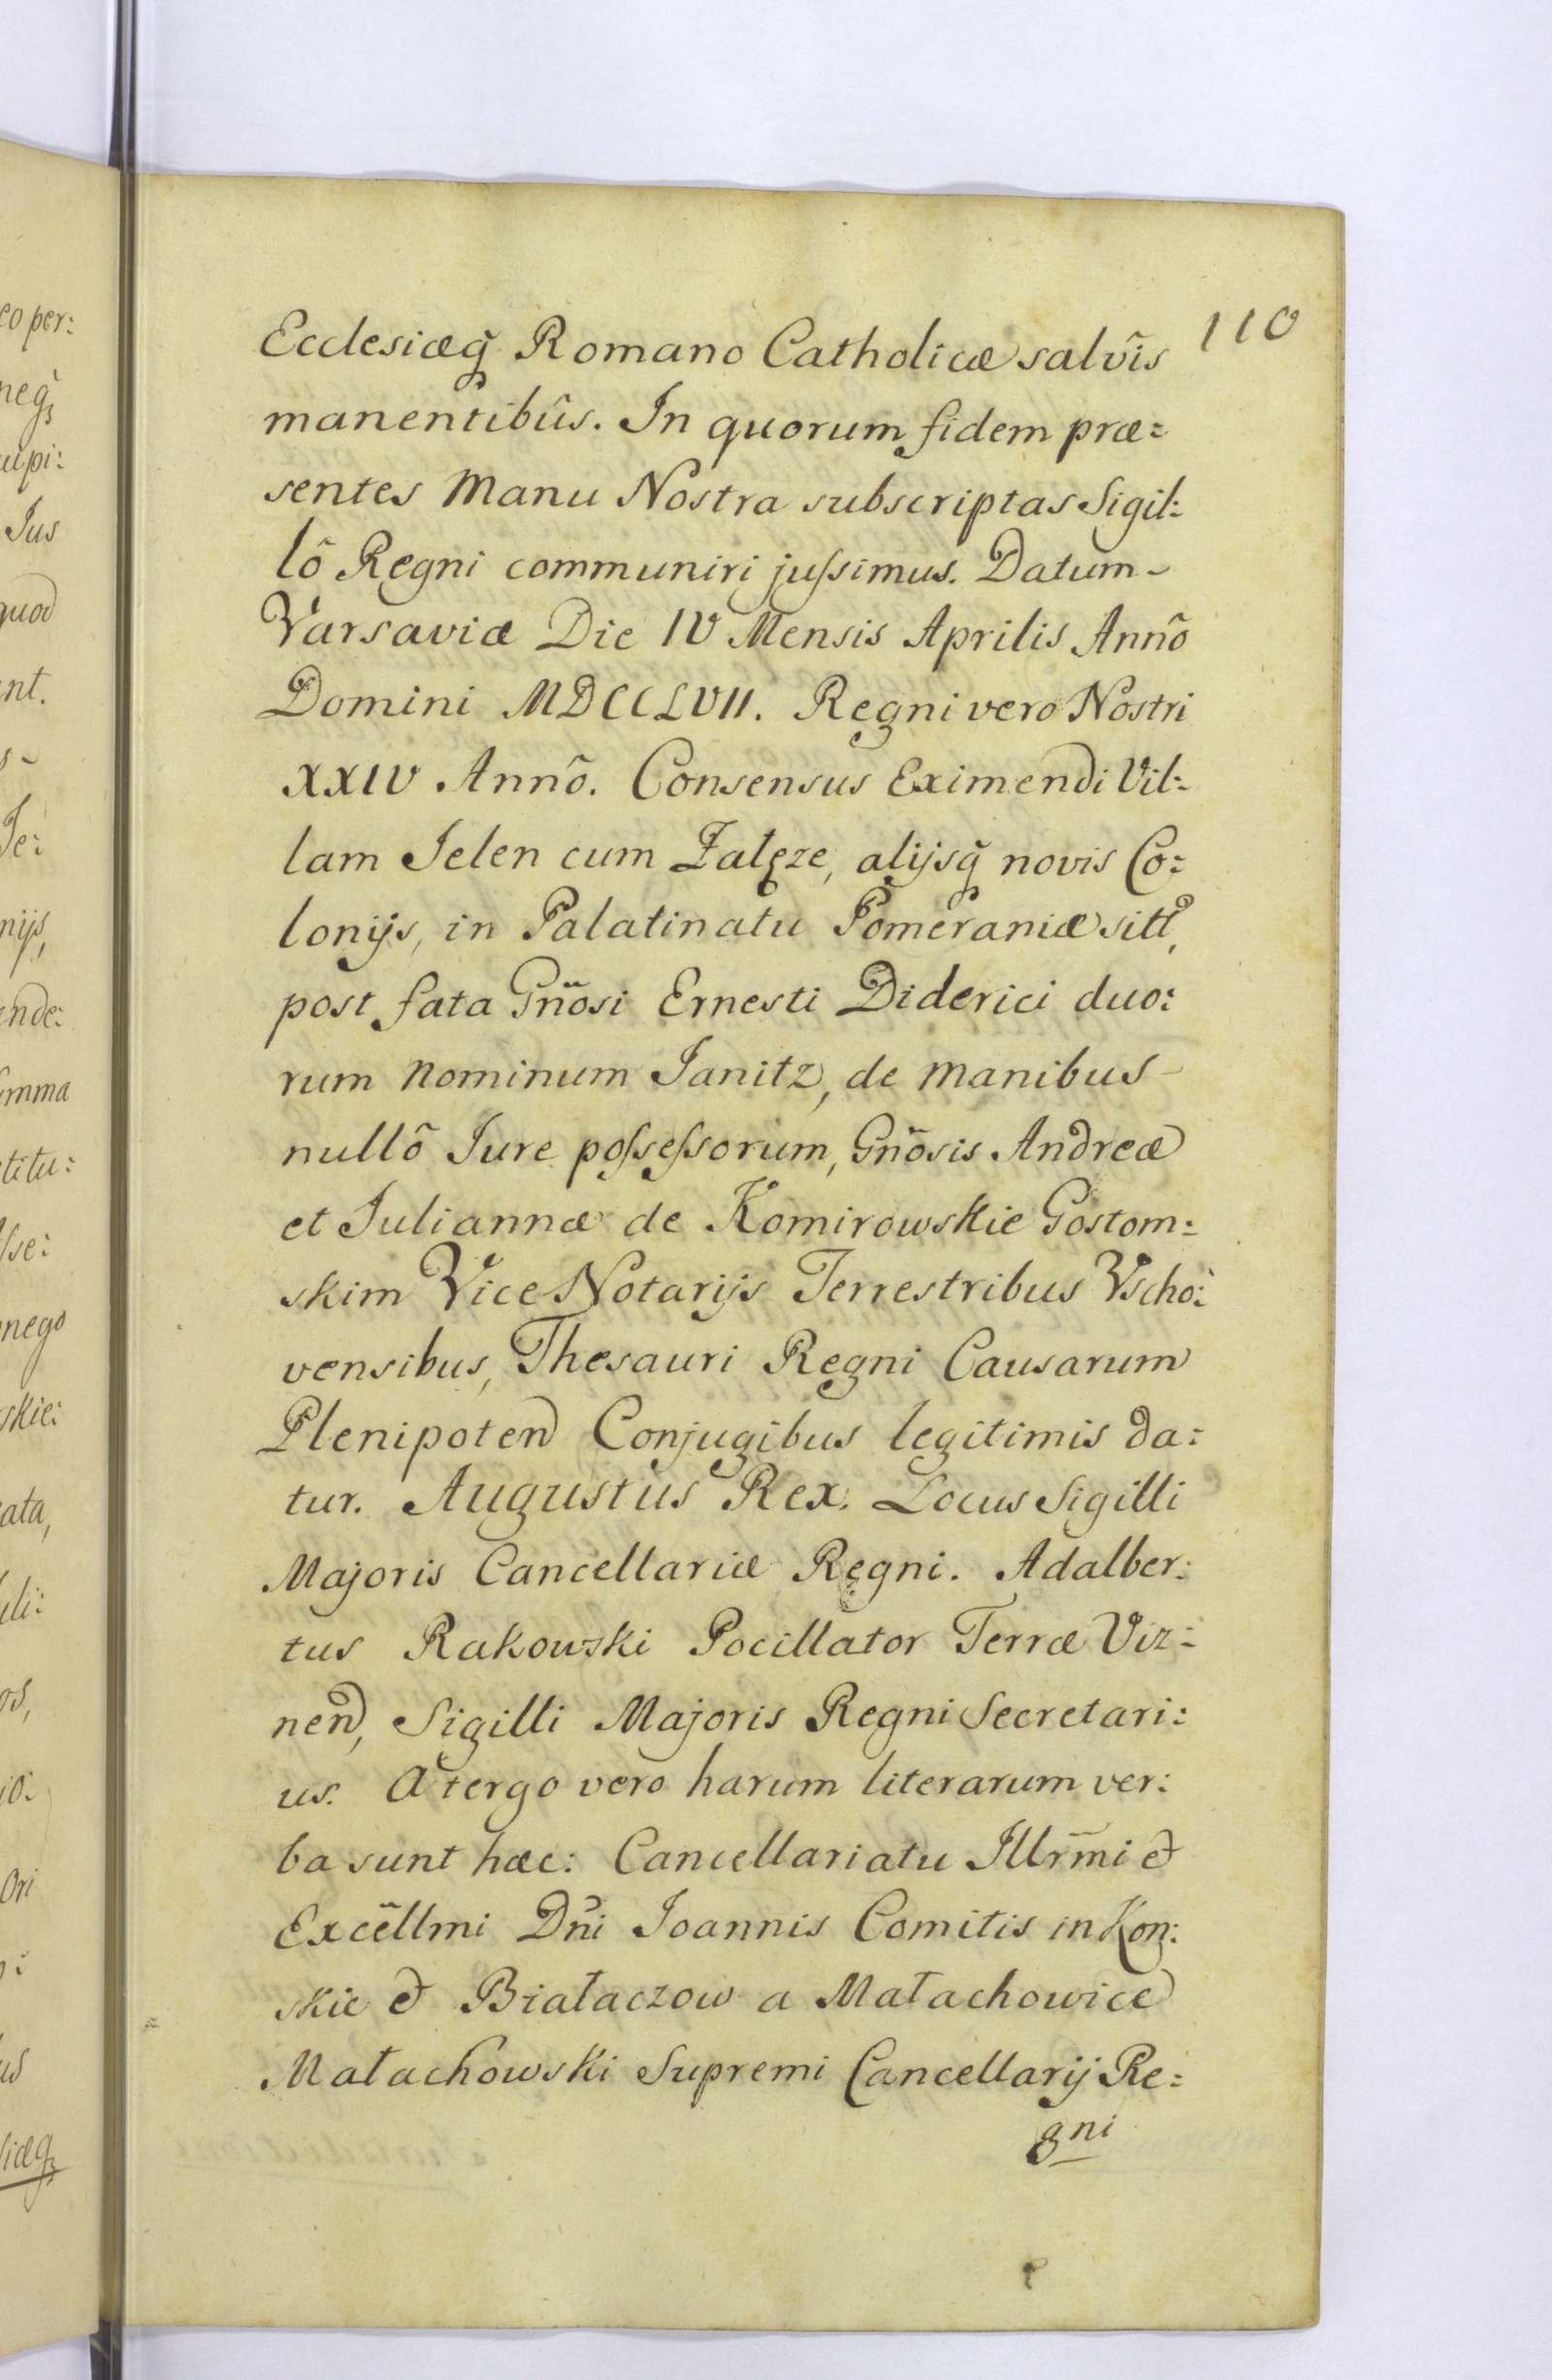 110
Ecclesiæq̃ Romano Catholicæ salvîs
manentibûs. In quorum fidem præ:
sentes Manu Nostra subscriptas Sigil:
lô Regni communiri jussimus. Datum
Varsaviæ Die IV Mensis Aprilis Annô
Domini MDCCLVII. Regni vero Nostri
XXIV Annô. Consensus Eximendi Vil:
lam Jelen cum Załęze, alijsq̃ novis Co:
lonijs, in Palatinatu Pomeraniæ sitt,
post fata Gñosi Ernesti Diderici duo:
rum Nominum Janitz, de manibus
nullô Jure possessorum, Gñosis Andreæ
et Juliannæ de Komirowskie Gostom:
skim Vice Notarijs Terrestribus Vscho:
vensibus, Thesauri Regni Causarum
Plenipoten Conjugibus legitimis da:
tur. Augustus Rex. Locus Sigilli
Majoris Cancellariæ Regni. Adalber:
tus Rakowski Pocillator Terræ Viz:
nen, Sigilli Majoris Regni Secretari:
us. A tergo vero harum literarum ver:
ba sunt hæc: Cancellariatu Illrm̃i &
Excellm̃i Dñi Joannis Comitis in Kon:
skie & Białaczow a Małachowice
Małachowski Supremi Cancellarij Re:
gni
eo per:
neq̃
Jus
quod
Je:
nijs,
ende:
titu:
nego
skie: